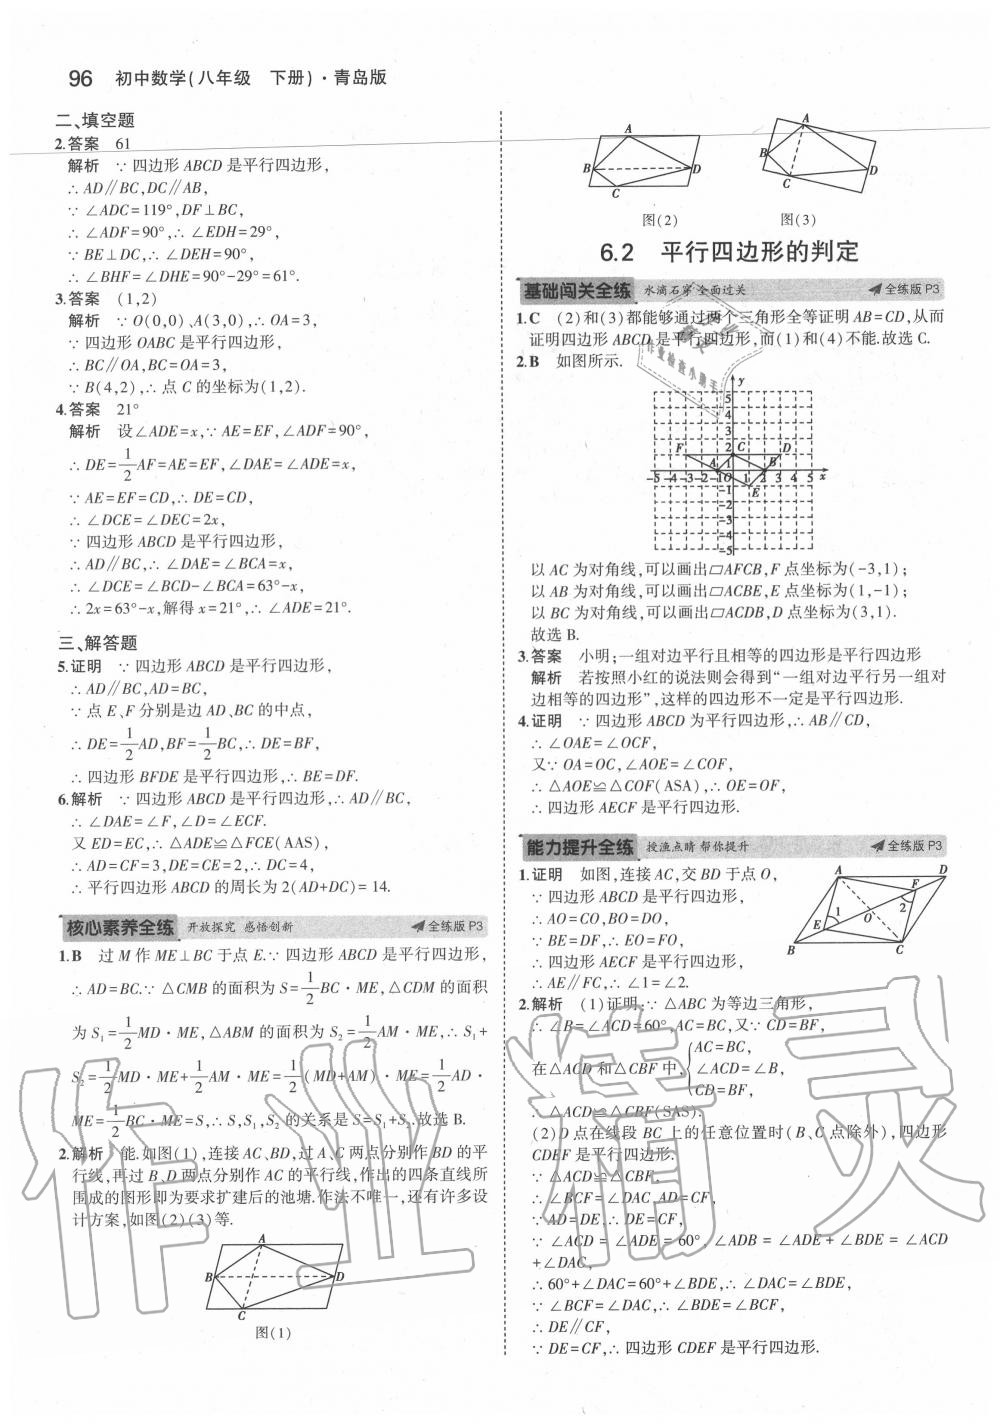 96 初中数学(八年级 下册)·青岛版
二、填空题
2.答案 61
解析 ∵四边形ABCD是平行四边形,
∴AD∥BC,DC∥AB,
∵∠ADC=119°,DF⊥BC,
∴∠ADF=90°,∴∠EDH=29°,
∵BE⊥DC,∴∠DEH=90°,
∴∠BHF=∠DHE=90°-29°=61°.
3.答案 (1,2)
解析 ∵O(0,0)、A(3,0),∴OA=3,
∵四边形OABC是平行四边形,
∴BC∥OA,BC=OA=3,
∵B(4,2),∴点C的坐标为(1,2).
4.答案 21°
解析 设∠ADE=x,∵AE=EF,∠ADF=90°,
∴DE=1/2AF=AE=EF,∠DAE=∠ADE=x,
∵AE=EF=CD,∴DE=CD,
∴∠DCE=∠DEC=2x,
∵四边形ABCD是平行四边形,
∴AD∥BC,∴∠DAE=∠BCA=x,
∴∠DCE=∠BCD-∠BCA=63°-x,
∴2x=63°-x,解得x=21°,∴∠ADE=21°.
三、解答题
5.证明 ∵四边形ABCD是平行四边形,
∴AD∥BC,AD=BC,
∵点E、F分别是边AD、BC的中点,
∴DE=1/2AD,BF=1/2BC,∴DE=BF,
∴四边形BFDE是平行四边形,∴BE=DF.
6.解析 ∵四边形ABCD是平行四边形,∴AD∥BC,
∴∠DAE=∠F,∠D=∠ECF.
又ED=EC,∴△ADE≌△FCE(AAS),
∴AD=CF=3,DE=CE=2,∴DC=4,
∴平行四边形ABCD的周长为2(AD+DC)=14.
核心素养全练 开放探究 感悟创新 全练版P3
1.B 过M作ME⊥BC于点E.∵四边形ABCD是平行四边形,
∴AD=BC.∵△CMB的面积为S=1/2BC·ME,△CDM的面积
为S₁=1/2MD·ME,△ABM的面积为S₂=1/2AM·ME,∴S₁+
S₂=1/2MD·ME+1/2AM·ME=1/2(MD+AM)·ME=1/2AD·
ME=1/2BC·ME=S,∴S,S₁,S₂的关系是S=S₁+S₂.故选B.
2.解析 能.如图(1),连接AC、BD,过A、C两点分别作BD的平
行线,再过B、D两点分别作AC的平行线,作出的四条直线所
围成的图形即为要求扩建后的池塘.作法不唯一,还有许多设
计方案,如图(2)(3)等.
A
B
D
C
图(1)
A
B
D
C
图(2)
A
B
D
C
图(3)
6.2 平行四边形的判定
基础闯关全练 水滴石穿 全面过关 全练版P3
1.C (2)和(3)都能够通过两个三角形全等证明AB=CD,从而
证明四边形ABCD是平行四边形,而(1)和(4)不能.故选C.
2.B 如图所示.
y
5
4
3
F 2 C D
A 1 B
-5 -4 -3 -2 -1 O 1 2 3 4 5 x
-1 E
-2
-3
-4
-5
以AC为对角线,可以画出▱AFCB,F点坐标为(-3,1);
以AB为对角线,可以画出▱ACBE,E点坐标为(1,-1);
以BC为对角线,可以画出▱ACDB,D点坐标为(3,1).
故选B.
3.答案 小明;一组对边平行且相等的四边形是平行四边形
解析 若按照小红的说法则会得到“一组对边平行另一组对
边相等的四边形”,这样的四边形不一定是平行四边形.
4.证明 ∵四边形ABCD为平行四边形,∴AB∥CD,
∴∠OAE=∠OCF,
又∵OA=OC,∠AOE=∠COF,
∴△AOE≌△COF(ASA),∴OE=OF,
∴四边形AECF是平行四边形.
能力提升全练 授渔点睛 帮你提升 全练版P3
1.证明 如图,连接AC,交BD于点O,
∵四边形ABCD是平行四边形,
∴AO=CO,BO=DO,
∵BE=DF,∴EO=FO,
∴四边形AECF是平行四边形,
∴AE∥FC,∴∠1=∠2.
A D
F
1 O 2
E
B C
2.解析 (1)证明:∵△ABC为等边三角形,
∴∠B=∠ACD=60°,AC=BC,又∵CD=BF,
在△ACD和△CBF中,
AC=BC,
∠ACD=∠B,
CD=BF,
∴△ACD≌△CBF(SAS).
(2)D点在线段BC上的任意位置时(B、C点除外),四边形
CDEF是平行四边形.
∵△ACD≌△CBF,
∴∠BCF=∠DAC,AD=CF,
∵AD=DE,∴DE=CF,
∵∠ACD=∠ADE=60°,∠ADB=∠ADE+∠BDE=∠ACD
+∠DAC,
∴60°+∠DAC=60°+∠BDE,∴∠DAC=∠BDE,
∵∠BCF=∠DAC,∴∠BDE=∠BCF,
∴DE∥CF,
∵DE=CF,∴四边形CDEF是平行四边形.
作业精灵
作业检查小助手